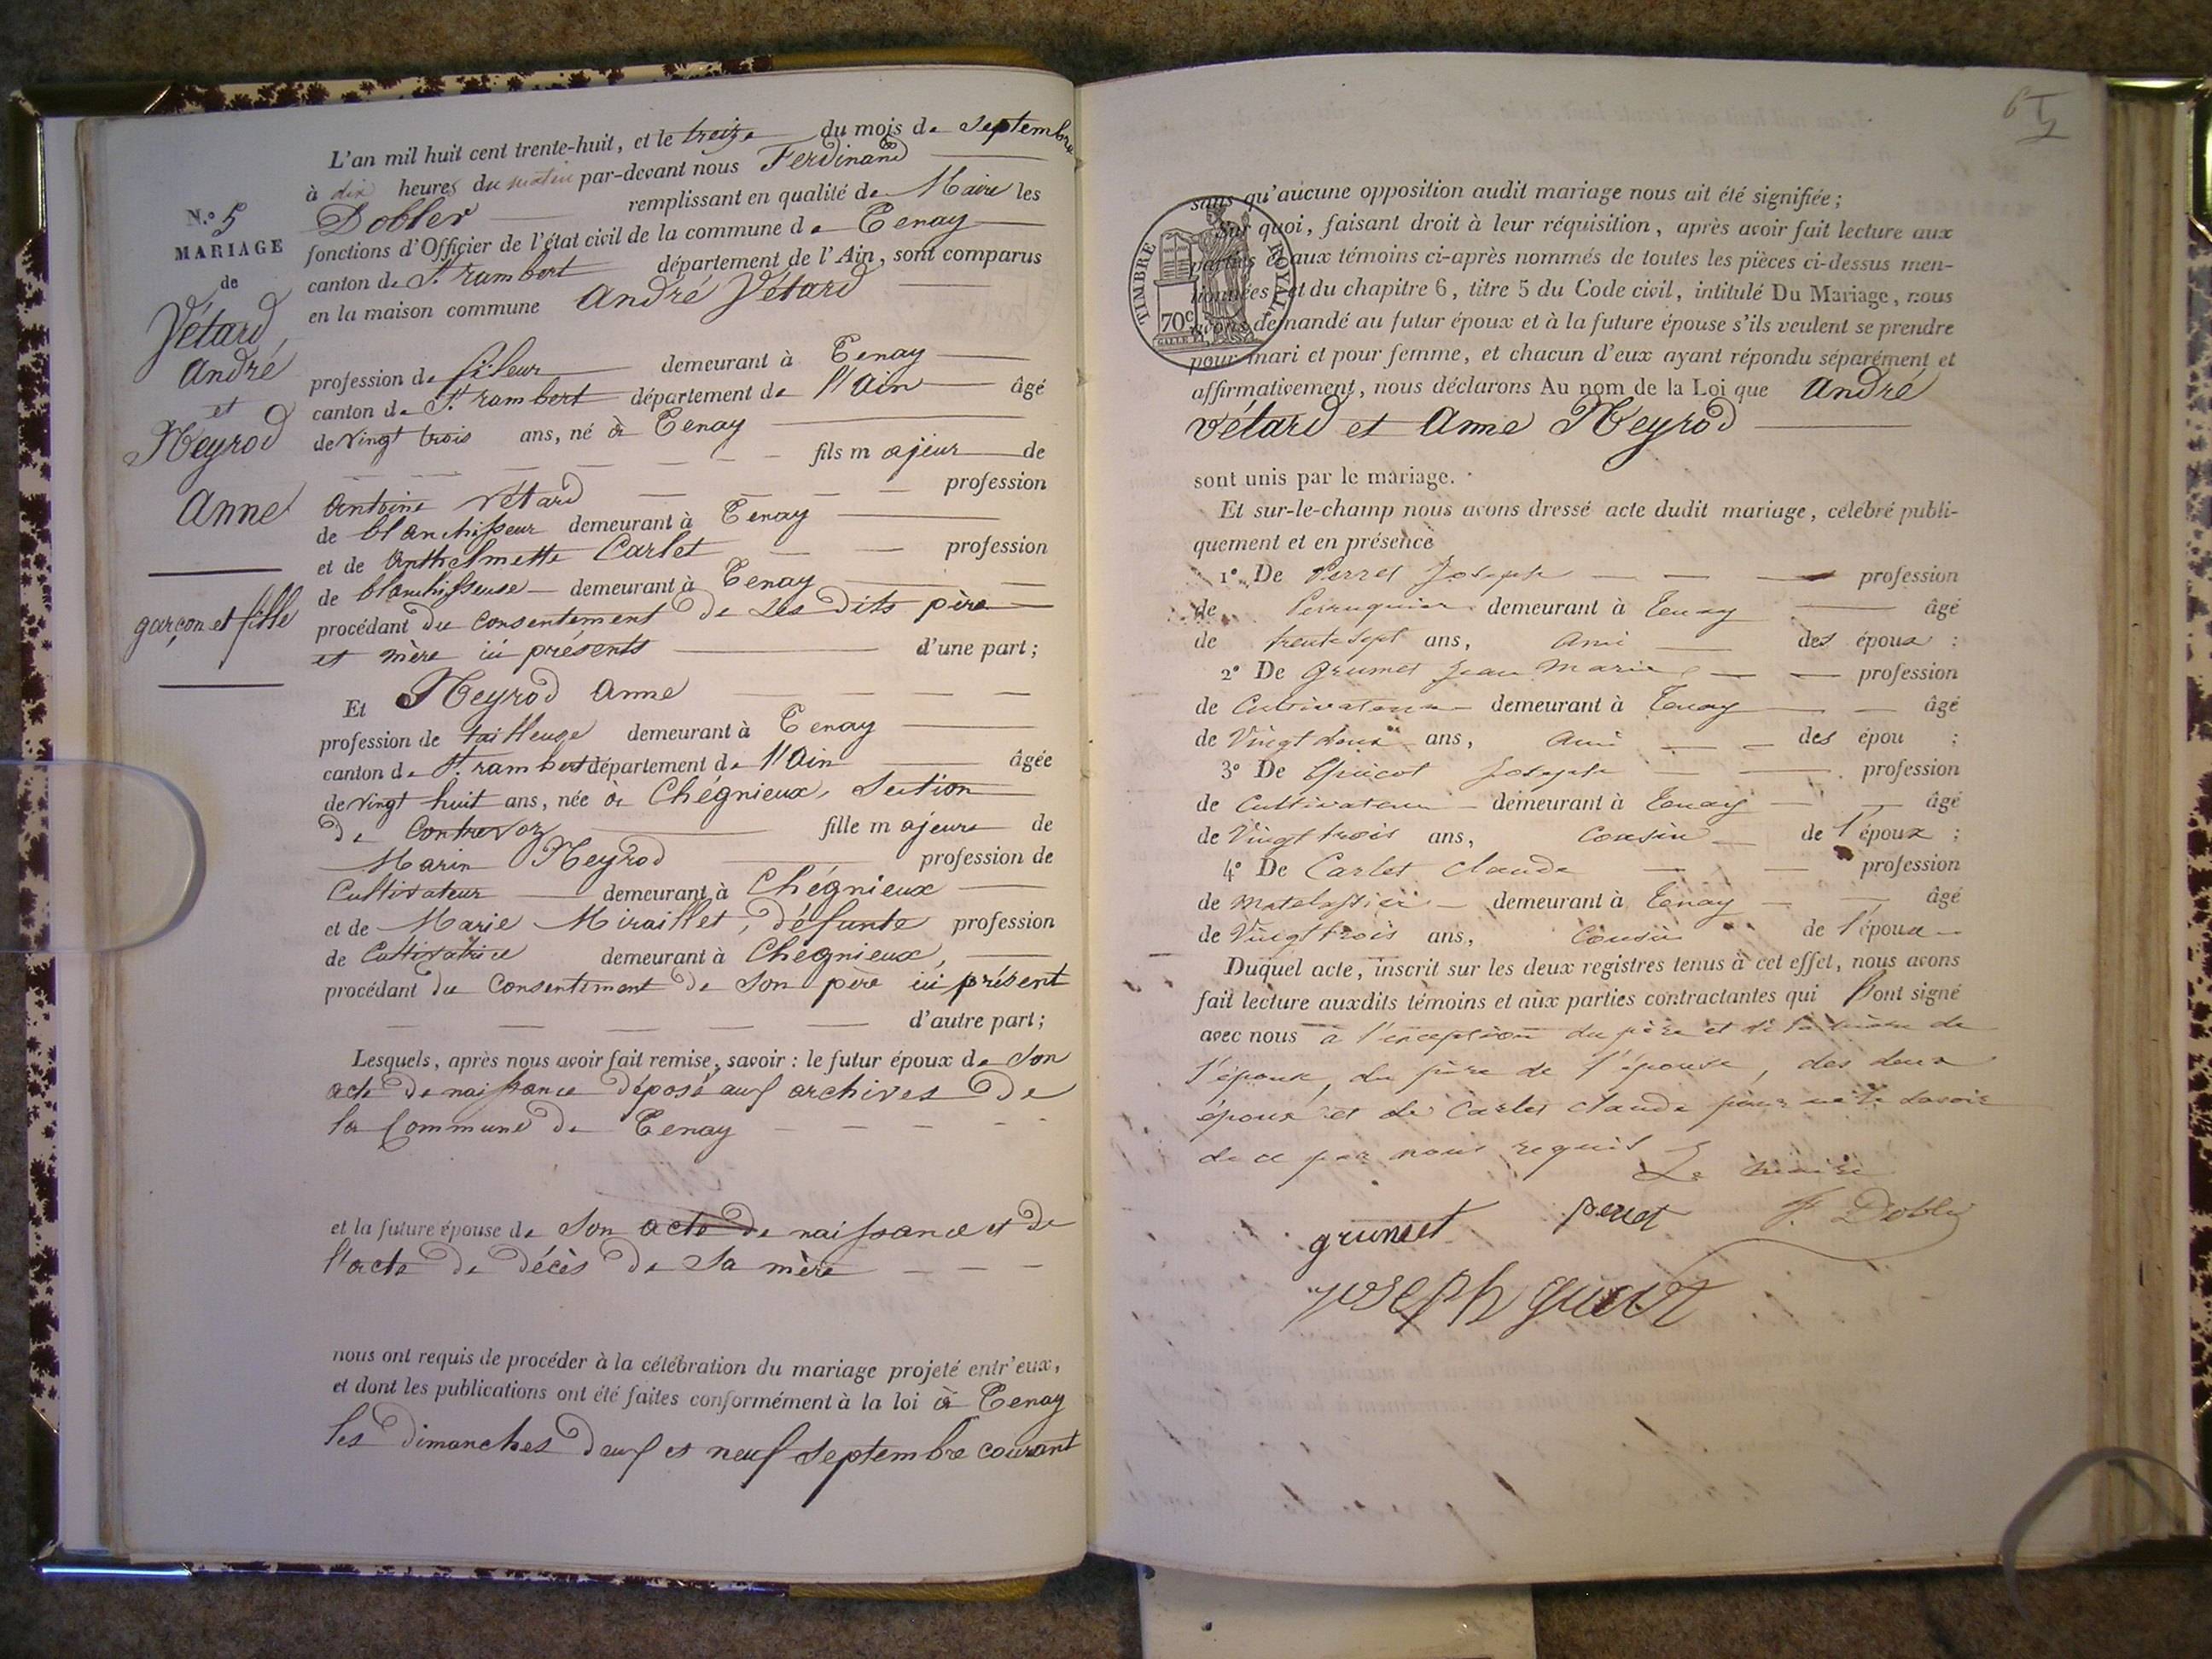 L'an mil huit cent trente-huit, et le treize du mois de septembre
à dix heures du matin par-devant nous Ferdinand
Dobler remplissant en qualité de Maire les
fonctions d'Officier de l'état civil de la commune de Tenay
canton de St. rambert département de l'Ain, sont comparus
en la maison commune André Vétard
profession de fileur demeurant à Tenay
canton de St. rambert département de l'Ain âgé
de vingt trois ans, né à Tenay
fils majeur de
Antoine Vétard profession
de blanchisseur demeurant à Tenay
et de Anthelmette Carlet profession
de blanchisseuse demeurant à Tenay
procédant du consentement de ses dits père
et mère ici présents d'une part;
Et Neyrod Anne
profession de tailleuse demeurant à Tenay
canton de St. rambert département de l'Ain âgée
de vingt huit ans, née à Chégnieux, Section
de Contrevoz fille majeure de
Marin Neyrod profession de
Cultivateur demeurant à Chégnieux
et de Marie Miraillet, défunte profession
de Cultivatrice demeurant à Chégnieux,
procédant du consentement de son père ici présent
d'autre part;
Lesquels, après nous avoir fait remise, savoir: le futur époux de son
acte de naissance déposé aux archives de
la Commune de Tenay
et la future épouse de son acte de naissance et de
l'acte de décès de sa mère
nous ont requis de procéder à la célébration du mariage projeté entr'eux,
et dont les publications ont été faites conformément à la loi à Tenay
les dimanches deux et neuf septembre courant
N.º 5
MARIAGE
de
Vétard,
André
et
Neyrod
Anne
garçon et fille
6
TIMBRE ROYAL
70c
sans qu'aucune opposition audit mariage nous ait été signifiée;
Sur quoi, faisant droit à leur réquisition, après avoir fait lecture aux
parties et aux témoins ci-après nommés de toutes les pièces ci-dessus men-
tionnées et du chapitre 6, titre 5 du Code civil, intitulé Du Mariage, nous
avons demandé au futur époux et à la future épouse s'ils veulent se prendre
pour mari et pour femme, et chacun d'eux ayant répondu séparément et
affirmativement, nous déclarons Au nom de la Loi que André
vétard et Anne Neyrod
sont unis par le mariage.
Et sur-le-champ nous avons dressé acte dudit mariage, célébré publi-
quement et en présence
1º De Perret Joseph profession
de Perruquier demeurant à Tenay âgé
de trente sept ans, ami des époux;
2º De Grumet Jean Marie profession
de Cultivateur demeurant à Tenay âgé
de Vingt deux ans, ami des épou ;
3º De Guicot Joseph profession
de Cultivateur demeurant à Tenay âgé
de Vingt trois ans, Cousin de l'époux;
4º De Carlet Claude profession
de Matelassier demeurant à Tenay âgé
de Vingt trois ans, Cousin de l'époux
Duquel acte, inscrit sur les deux registres tenus à cet effet, nous avons
fait lecture auxdits témoins et aux parties contractantes qui l'ont signé
avec nous à l'exception du père et de la mère de
l'époux, du père de l'épouse, des deux
époux et de Carlet Claude pour ne le savoir
de ce par nous requis
Le maire
grumet perret F. Dobler
joseph guicot